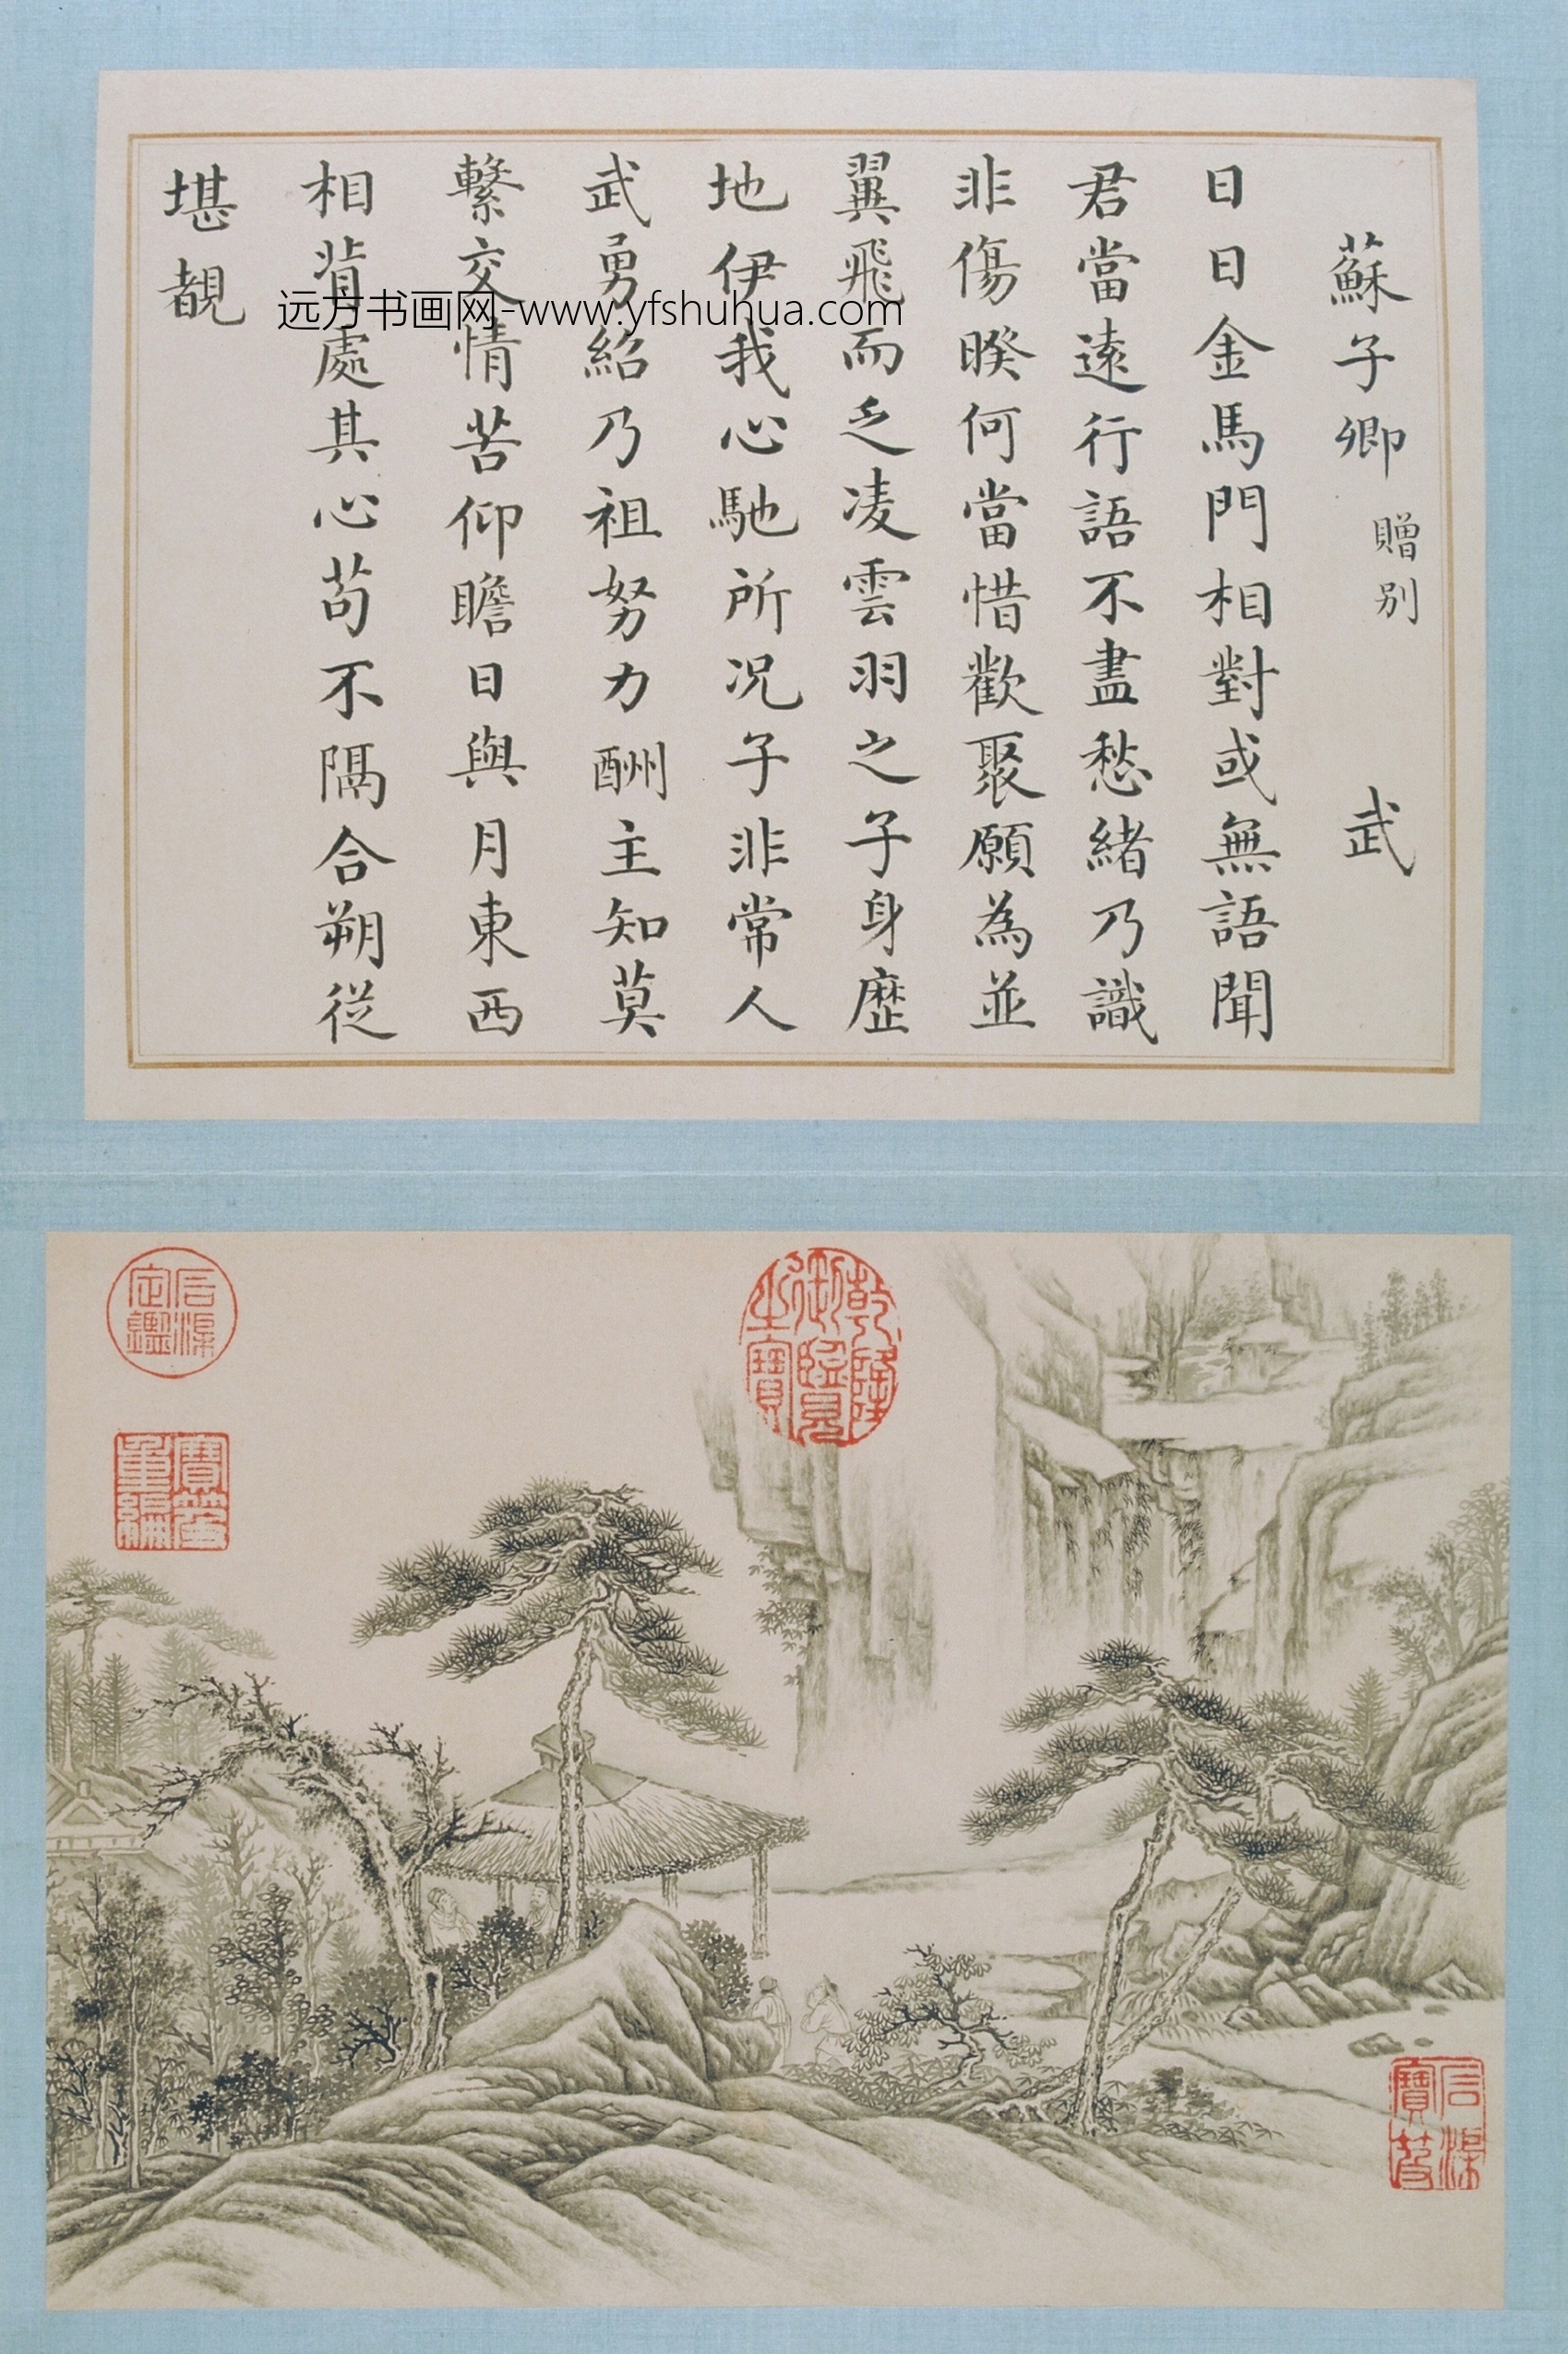 蘇子卿 贈別 武
日日金馬門相對或無語聞
君當遠行語不盡愁緒乃識
非傷睽何當惜歡聚願為並
翼飛而乏凌雲羽之子身歷
地伊我心馳所况子非常人
武勇紹乃祖努力酬主知莫
繫交情苦仰瞻日與月東西
相背處其心苟不隔合朔從
堪覩
远方书画网-www.yfshuhua.com
乾隆御覽之寶
石渠定鑑
寶笈重編
石渠寶笈